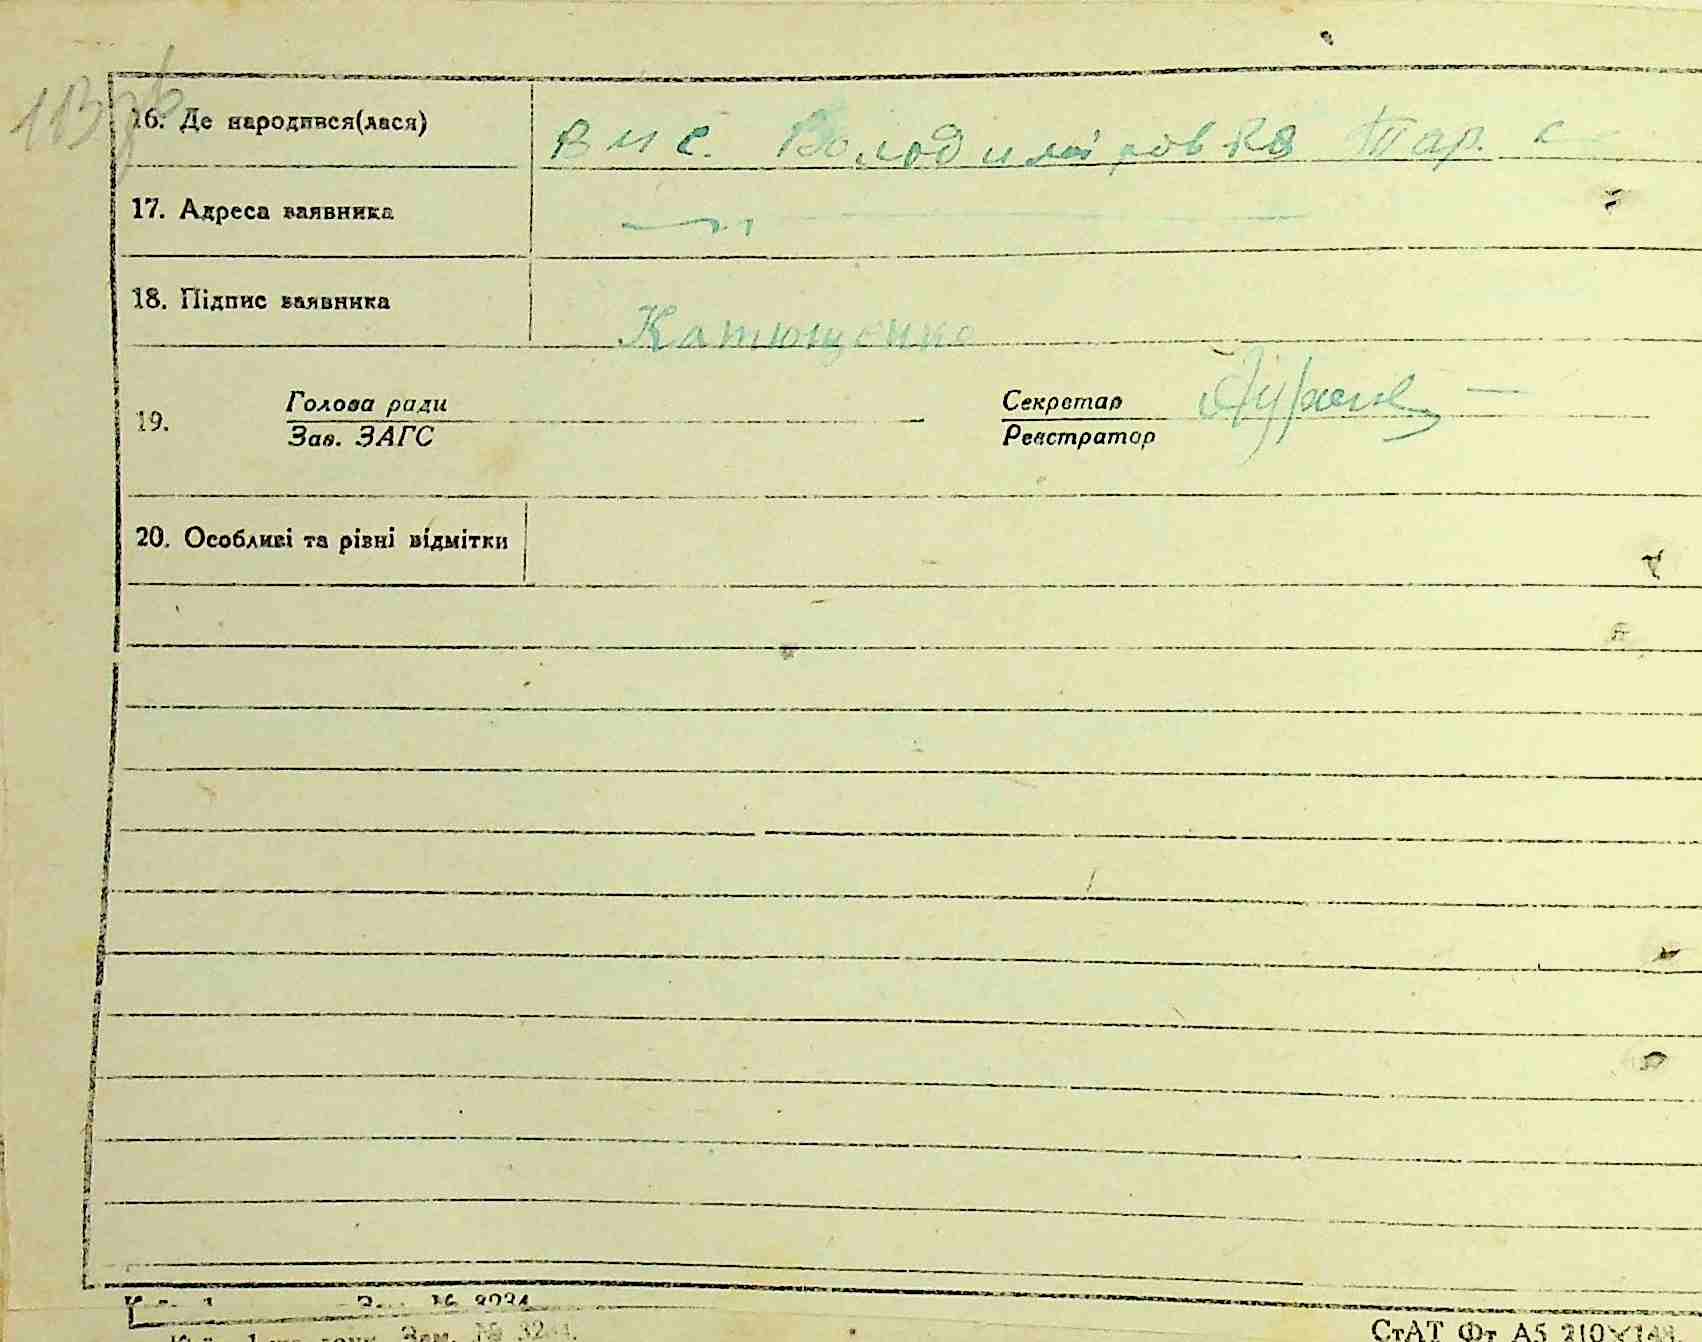 113зв
16. Де народився(лася) в м с. Володимі ровка Тар. с
17. Адреса заявника — " —
18. Підпис заявника Катющенко
19. Голова ради Секретар
Зав. ЗАГС Реєстратор
20. Особливі та різні відмітки
Зам. № 3234
СтАТ Фт А5 210×148